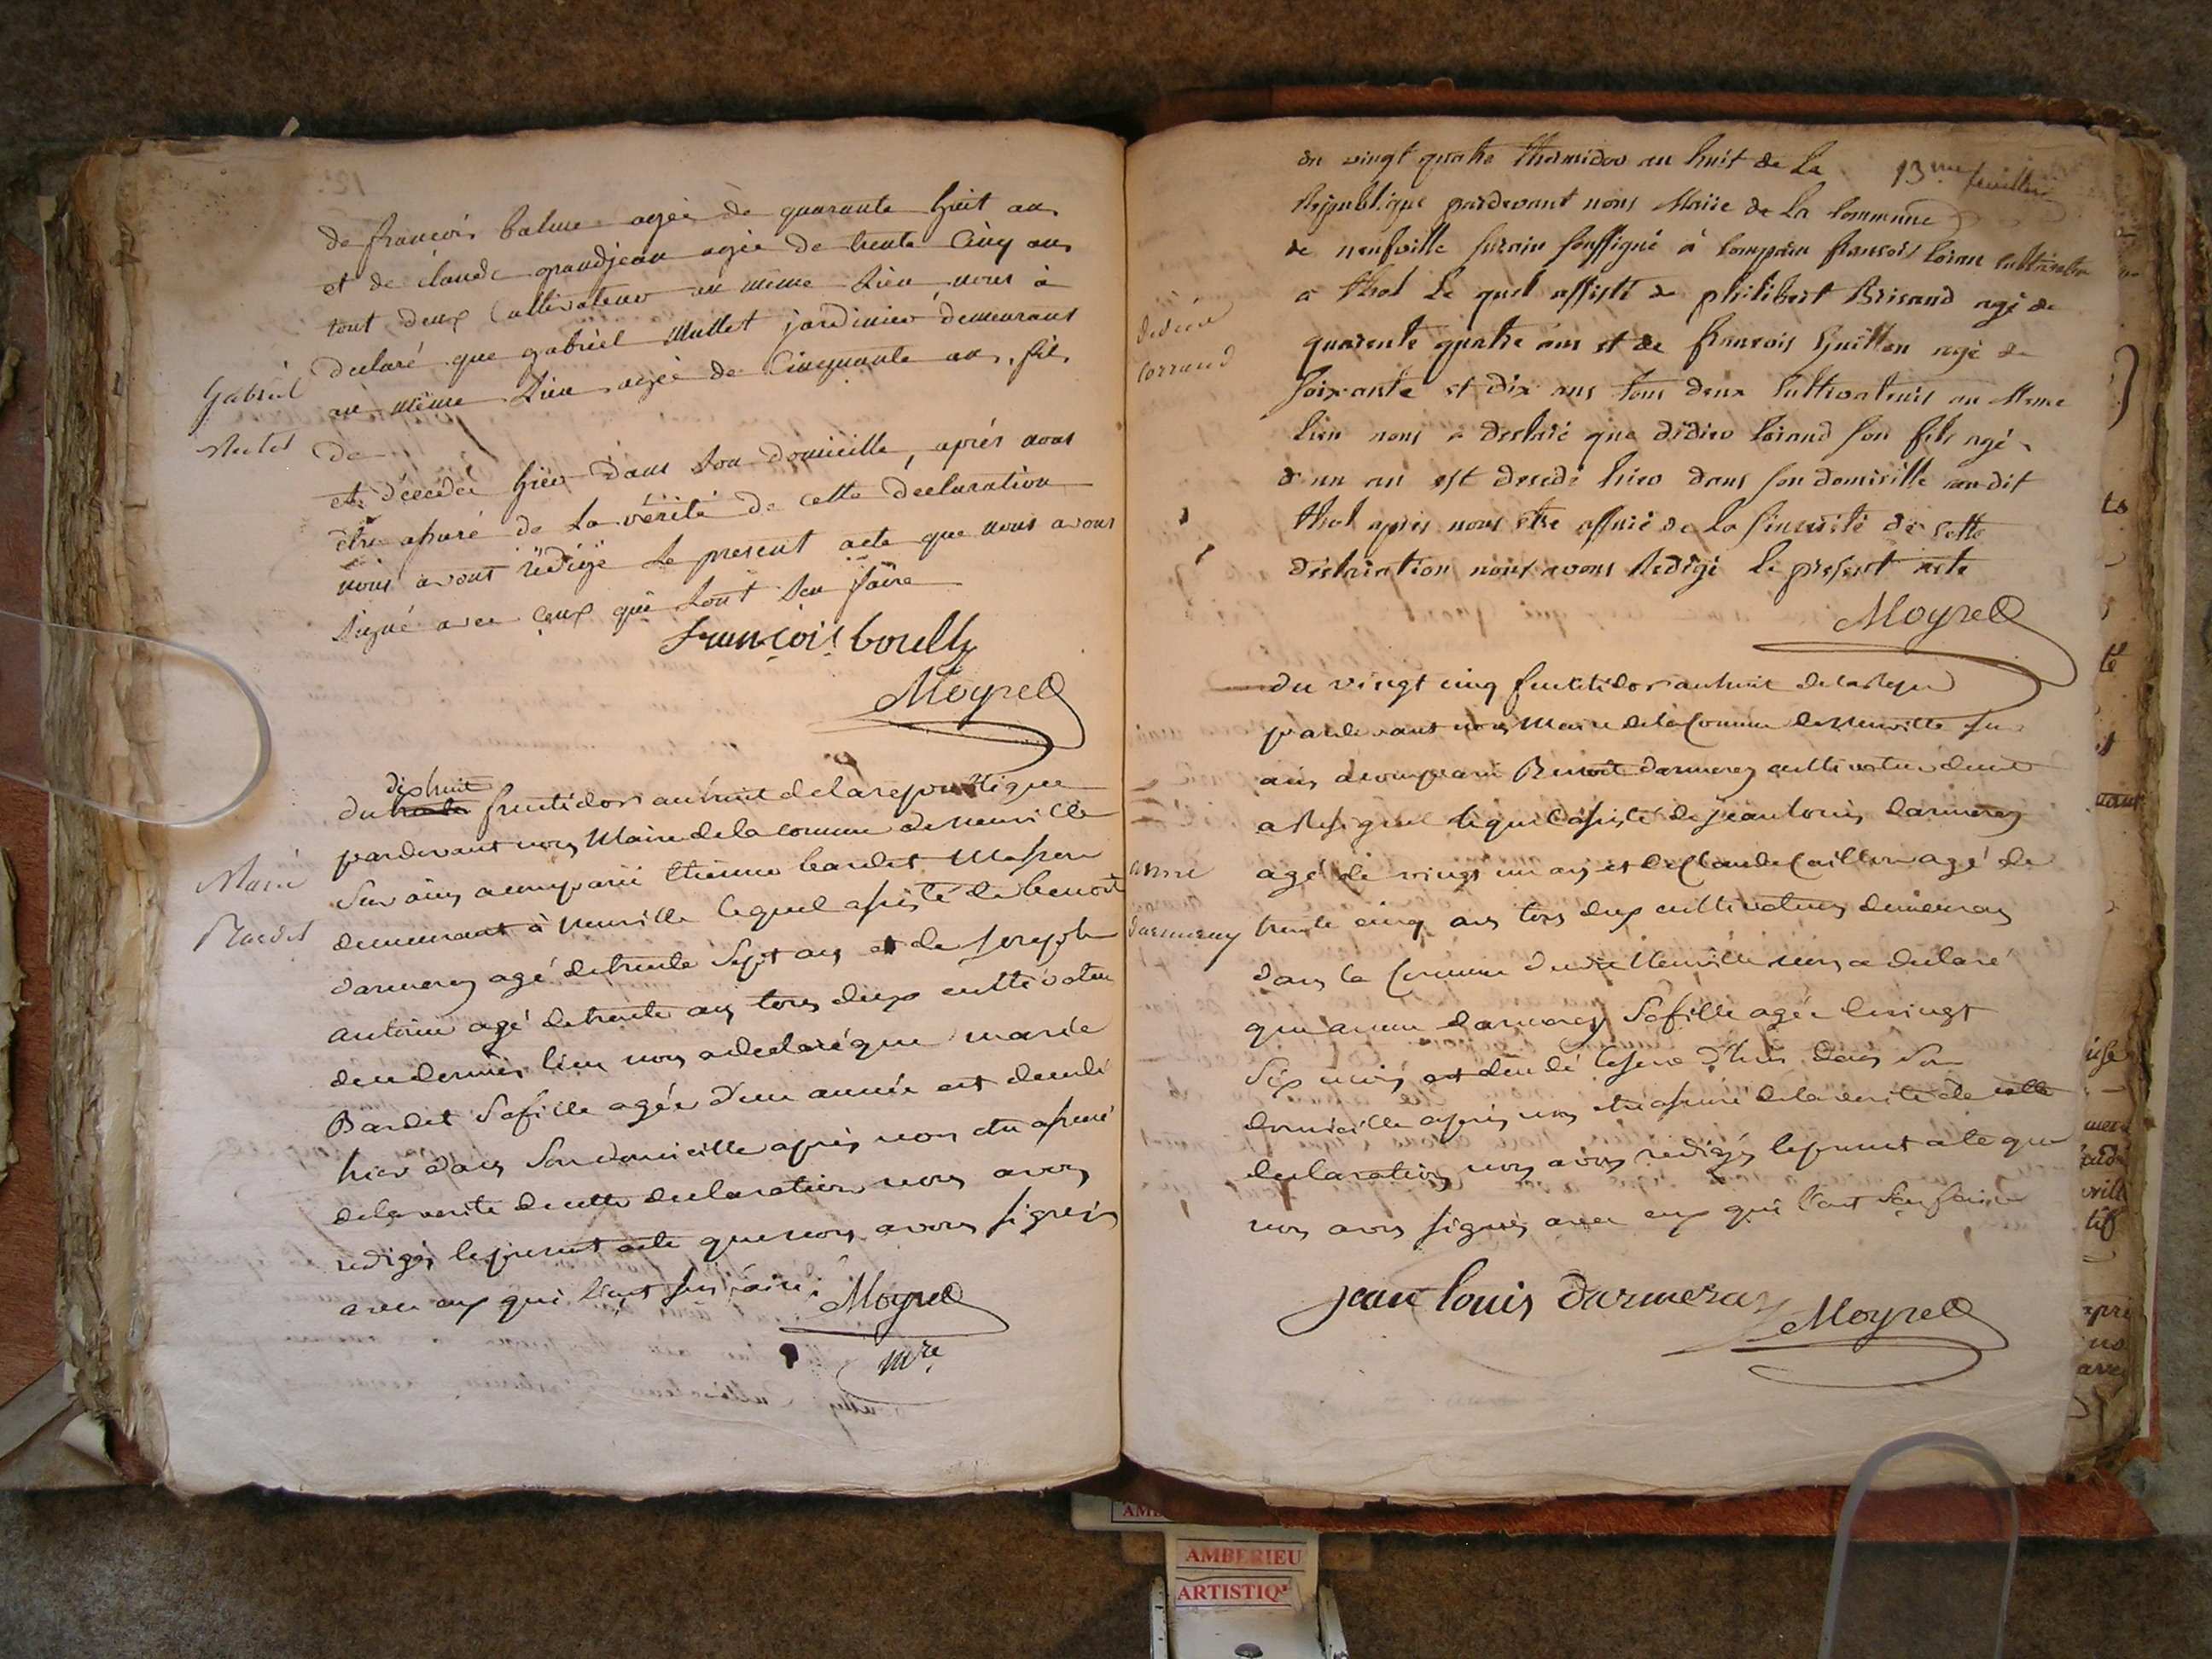 de françois balme agée de quarante huit ans
et de claude grandjean agée de trente cinq ans
tout deux Cultivateur au même lieu nous à
declaré que gabriel Mullet jardinier demeurans
au même lieu agée de Cinquante ans, fils
Gabriel
Mulet
de
et décédée hier dans son domicille, après nous
être assuré de la vérité de cette declaration
nous avons rédigé le present acte que nous avons
signé avec ceux qui l'ont seu faire
françois borelly
Moyret
dix huit
du fructidor an huit de la republique
pardevant nous Maire de la comune de neuville
Sur ains a comparu Etienne bardet
demeurant à neuville lequel asisté de benoit
Marie
Bardet
darmeray agé de trente sept ans et de joseph
antoine agé de trente ans tous deux cultivateur
du dernier lieu nous a declaré que marie
Bardet sa fille agée d'une année est decedé
hier dans son domicille après nous etre assuré
de la verité de cette declaration nous avons
redigés le present acte que nous avons signés
avec eux qui l'ont su faire
Moyret
mre
13me feuillet
du vingt quatre thermidor an huit de la
Republique pardevant nous Maire de la Commune
de neufville surain soussigné à comparu françois loiran cultivateur
à thol le quel assisté de philibert Brisand agé de
Didier
corrand
quarente quatre ans et de françois Guillon agé de
soixante et dix ans tous deux cultivateurs au Meme
lieu nous a declaré que didier loirand son fils agé
d'un an est decedé hier dans son domicille au dit
thol apres nous être assuré de la sincerité de cette
déclaration nous avons Redigé le present acte
Moyret
du vingt cinq fructidor an huit de la repu
pardevant nous Maire de la Comune de Neuville sur
ains a comparu Benoit darmeray cultivateur
a lequel asisté de jean louis darmeray
anne
darmeray
agé de vingt un ans et de Claude Caillon agé de
trente cinq ans tous deux cultivateurs demeurans
dans la Comune dudit Neuville nous a declaré
que anne darmeray sa fille agée de vingt
six mois est decedé d'hier dans son
domicille après nous etre assuré de la verité de cette
declaration nous avons redigés le present acte que
nous avons signés avec eux qui l'ont seu faire
jean louis darmeray
Moyret
AMBERIEU
ARTISTIQ